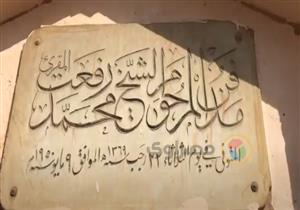 مدفن المرحوم الشيخ محمد رفعت المقرئ
المتوفى في يوم الثلاثاء ٢٢ رجب سنة ١٣٦٩ هـ الموافق ٩ مايو سنة ١٩٥٠ م
مصراوي